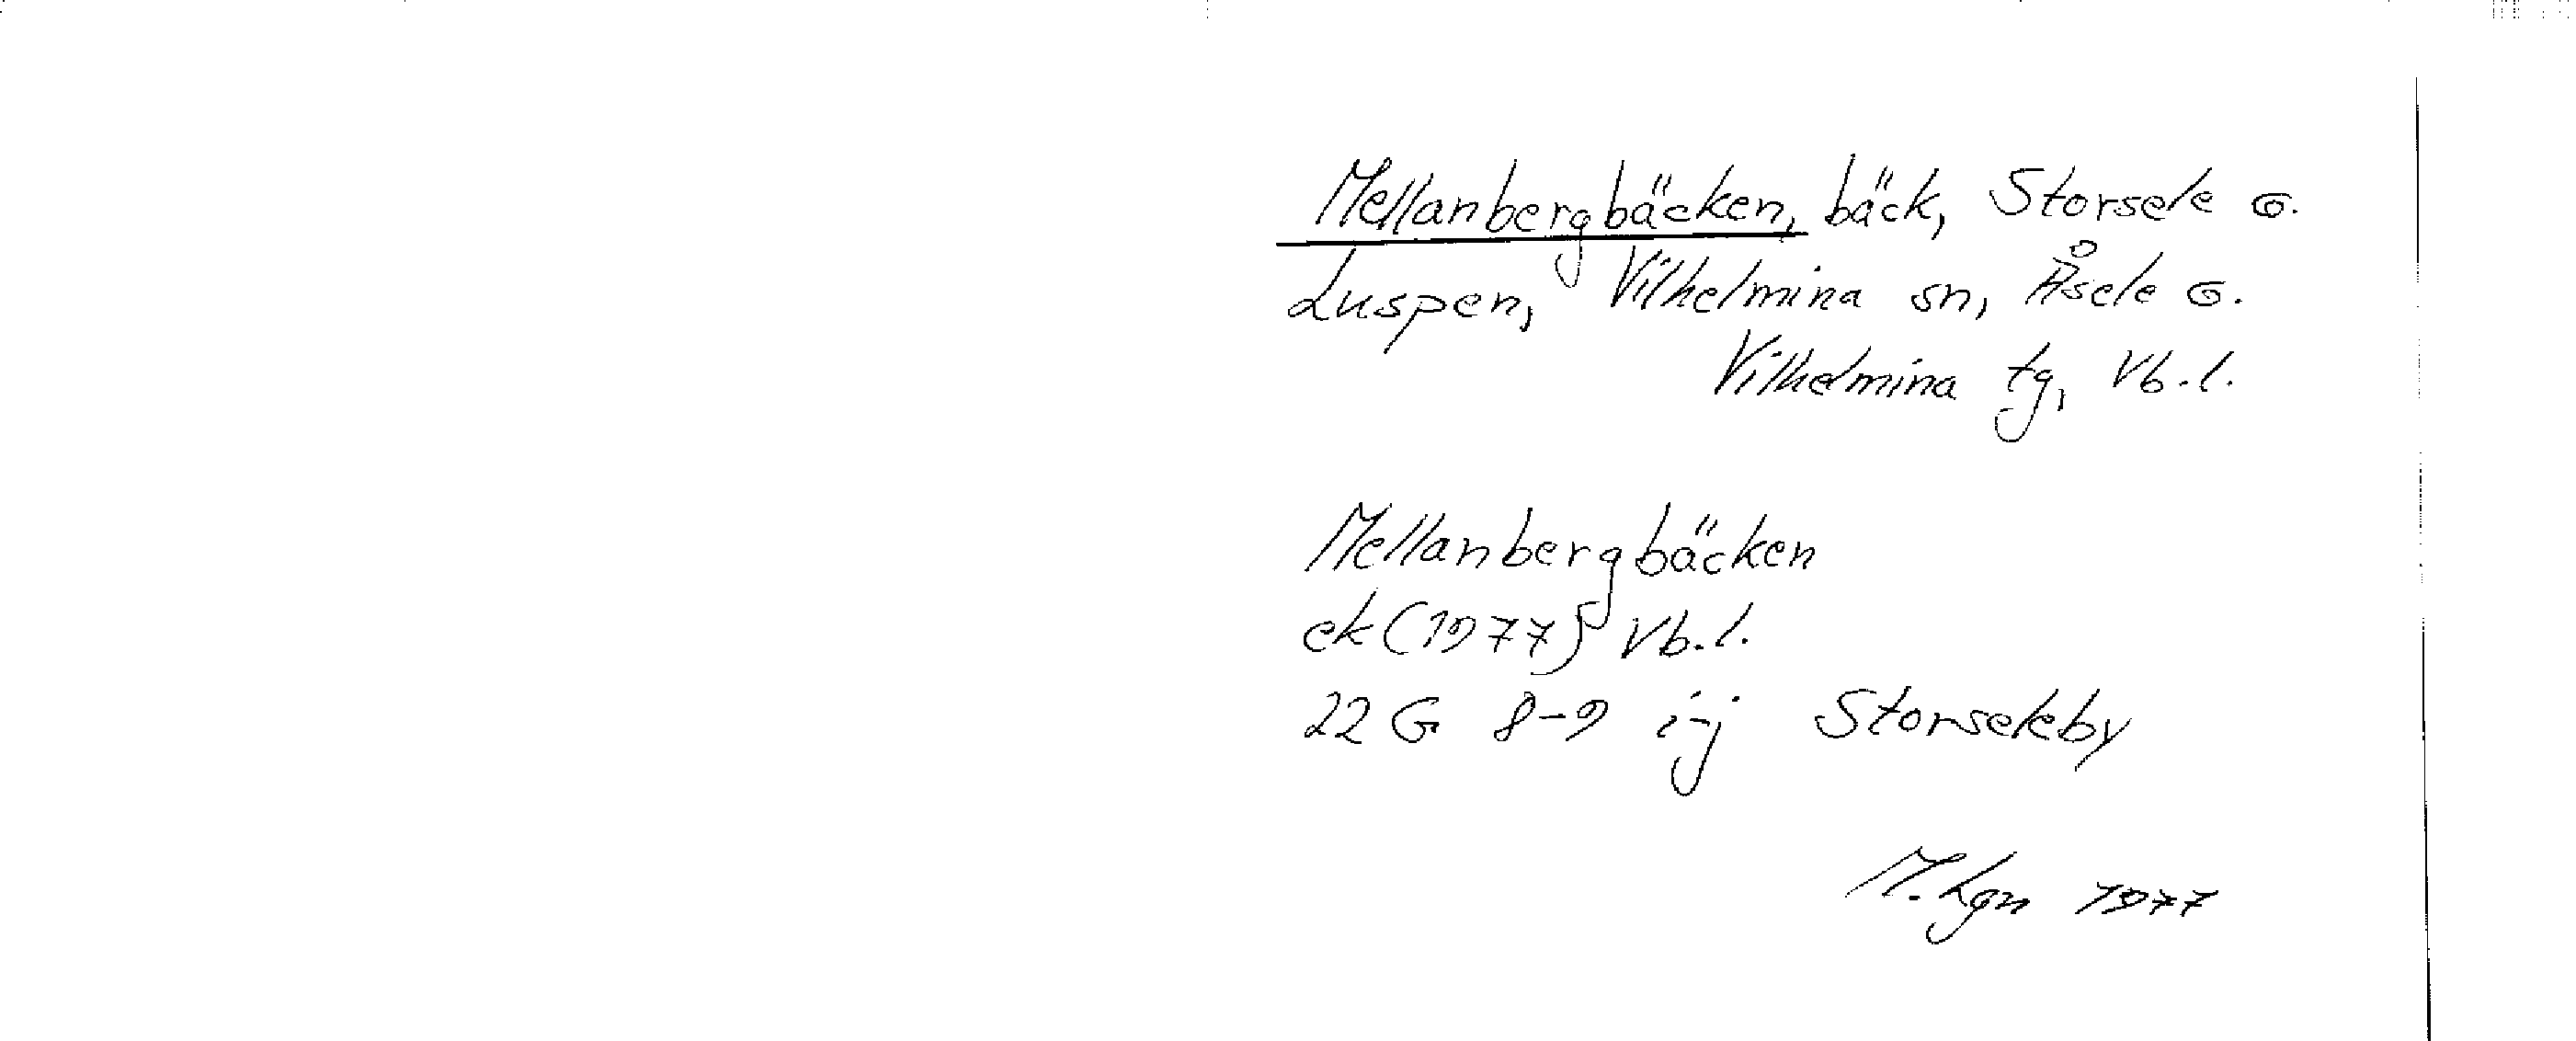 Mellanbergbäcken, bäck, Storsele G.
Luspen, Vilhelmina sn, Åsele G.
Vilhelmina tg, Vb.l.
Mellanbergbäcken
ek (1977) Vb.l.
22 G 8-9 i-j Storseleby
M. Lgn 1977